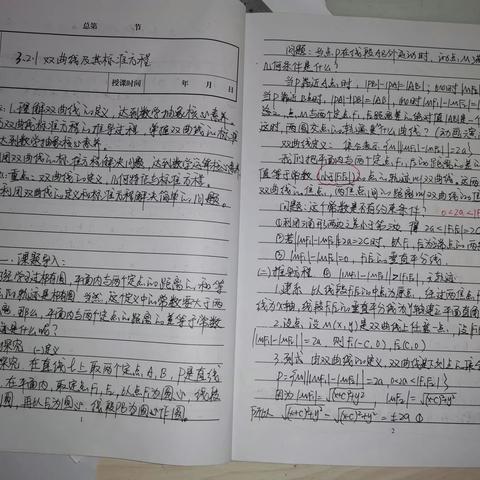 总第 节
3.2.1 双曲线及其标准方程
授课时间 年 月 日
1.理解双曲线的定义,达到数学抽象核心素养
双曲线标准方程的推导过程,掌握双曲线的标准
达到数学运算核心素养.
用双曲线的标准方程解决问题,达到数学运算核心素养
重点:双曲线的定义、几何特征与标准方程.
利用双曲线的定义和标准方程解决简单的问题.
一、课题导入:
学习过椭圆,平面内与两个定点的距离的和等
的轨迹是椭圆 当然,这个定义中的常数要大于两
那么,平面内与两个定点的距离的差等于常数
是什么呢?
探究 (一)定义
探究 在直线l上取两个定点A,B,P是直线
在平面内,取定点F₁,F₂,以点F₁为圆心、线段
圆,再以F₂为圆心、线段PB为圆心作圆.
1
问题:当点P在线段AB外运动时,动点M满足
几何条件是什么?
当P靠近A点时,|PB|-|PA|=|AB|,此时|MF₂|-|MF₁|=
当P靠近B点时,|PA|-|PB|=AB,此时|MF₁|-|MF₂|=
总之,点M与两个定点F₁,F₂距离差的绝对值|AB|是一个
这时,两圆交点的轨迹是什么曲线?
双曲线定义: 集合表示{M||MF₁|-|MF₂||=2a}
我们把平面内与两个定点F₁,F₂的距离的差的
值等于常数(小于|F₁F₂|)的点的轨迹叫双曲线.这两
双曲线的焦点,两焦点间的距离叫双曲线的
问题:这个常数是不有约束条件? 0<2a<|F₁F₂
①利用三角形两边之差小于第三边 得 2a<|F₁F₂|=2c
②若||MF₁|-|MF₂||=2a=2c时,以F₁,F₂为端点的两
③|MF₁|-|MF₂|=0,F₁F₂的垂直平分线
(二)推导方程 ④ ||MF₁|-|MF₂||>|F₁F₂|,无轨迹
1.建系 以线段F₁F₂的中点为原点,经过两焦点
线为x轴,线段F₁F₂的垂直平分线为y轴建立平面直角
2.设点 设M(x,y)是双曲线上任意一点,
||MF₁|-|MF₂||=2a 则F₁(-c,0),F₂(c,0)
3.列式 由双曲线的定义,双曲线就是下列点的
P={M|||MF₁|-|MF₂||=2a,0<2a<|F₁F₂|}
因为|MF₁|=√(x+c)²+y²,|MF₂|=√(x-c)²+y²
所以 √(x+c)²+y²-√(x-c)²+y²=±2a ①
2